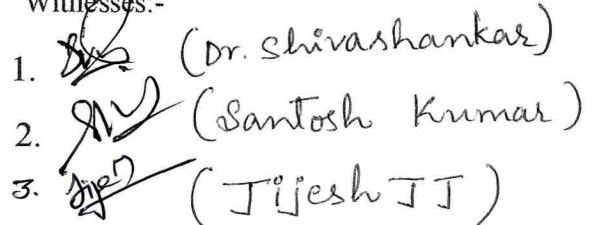 Witnesses:-
1. (Dr. Shivashankar)
2. (Santosh Kumar)
3. Jijesh (Jijesh J J)